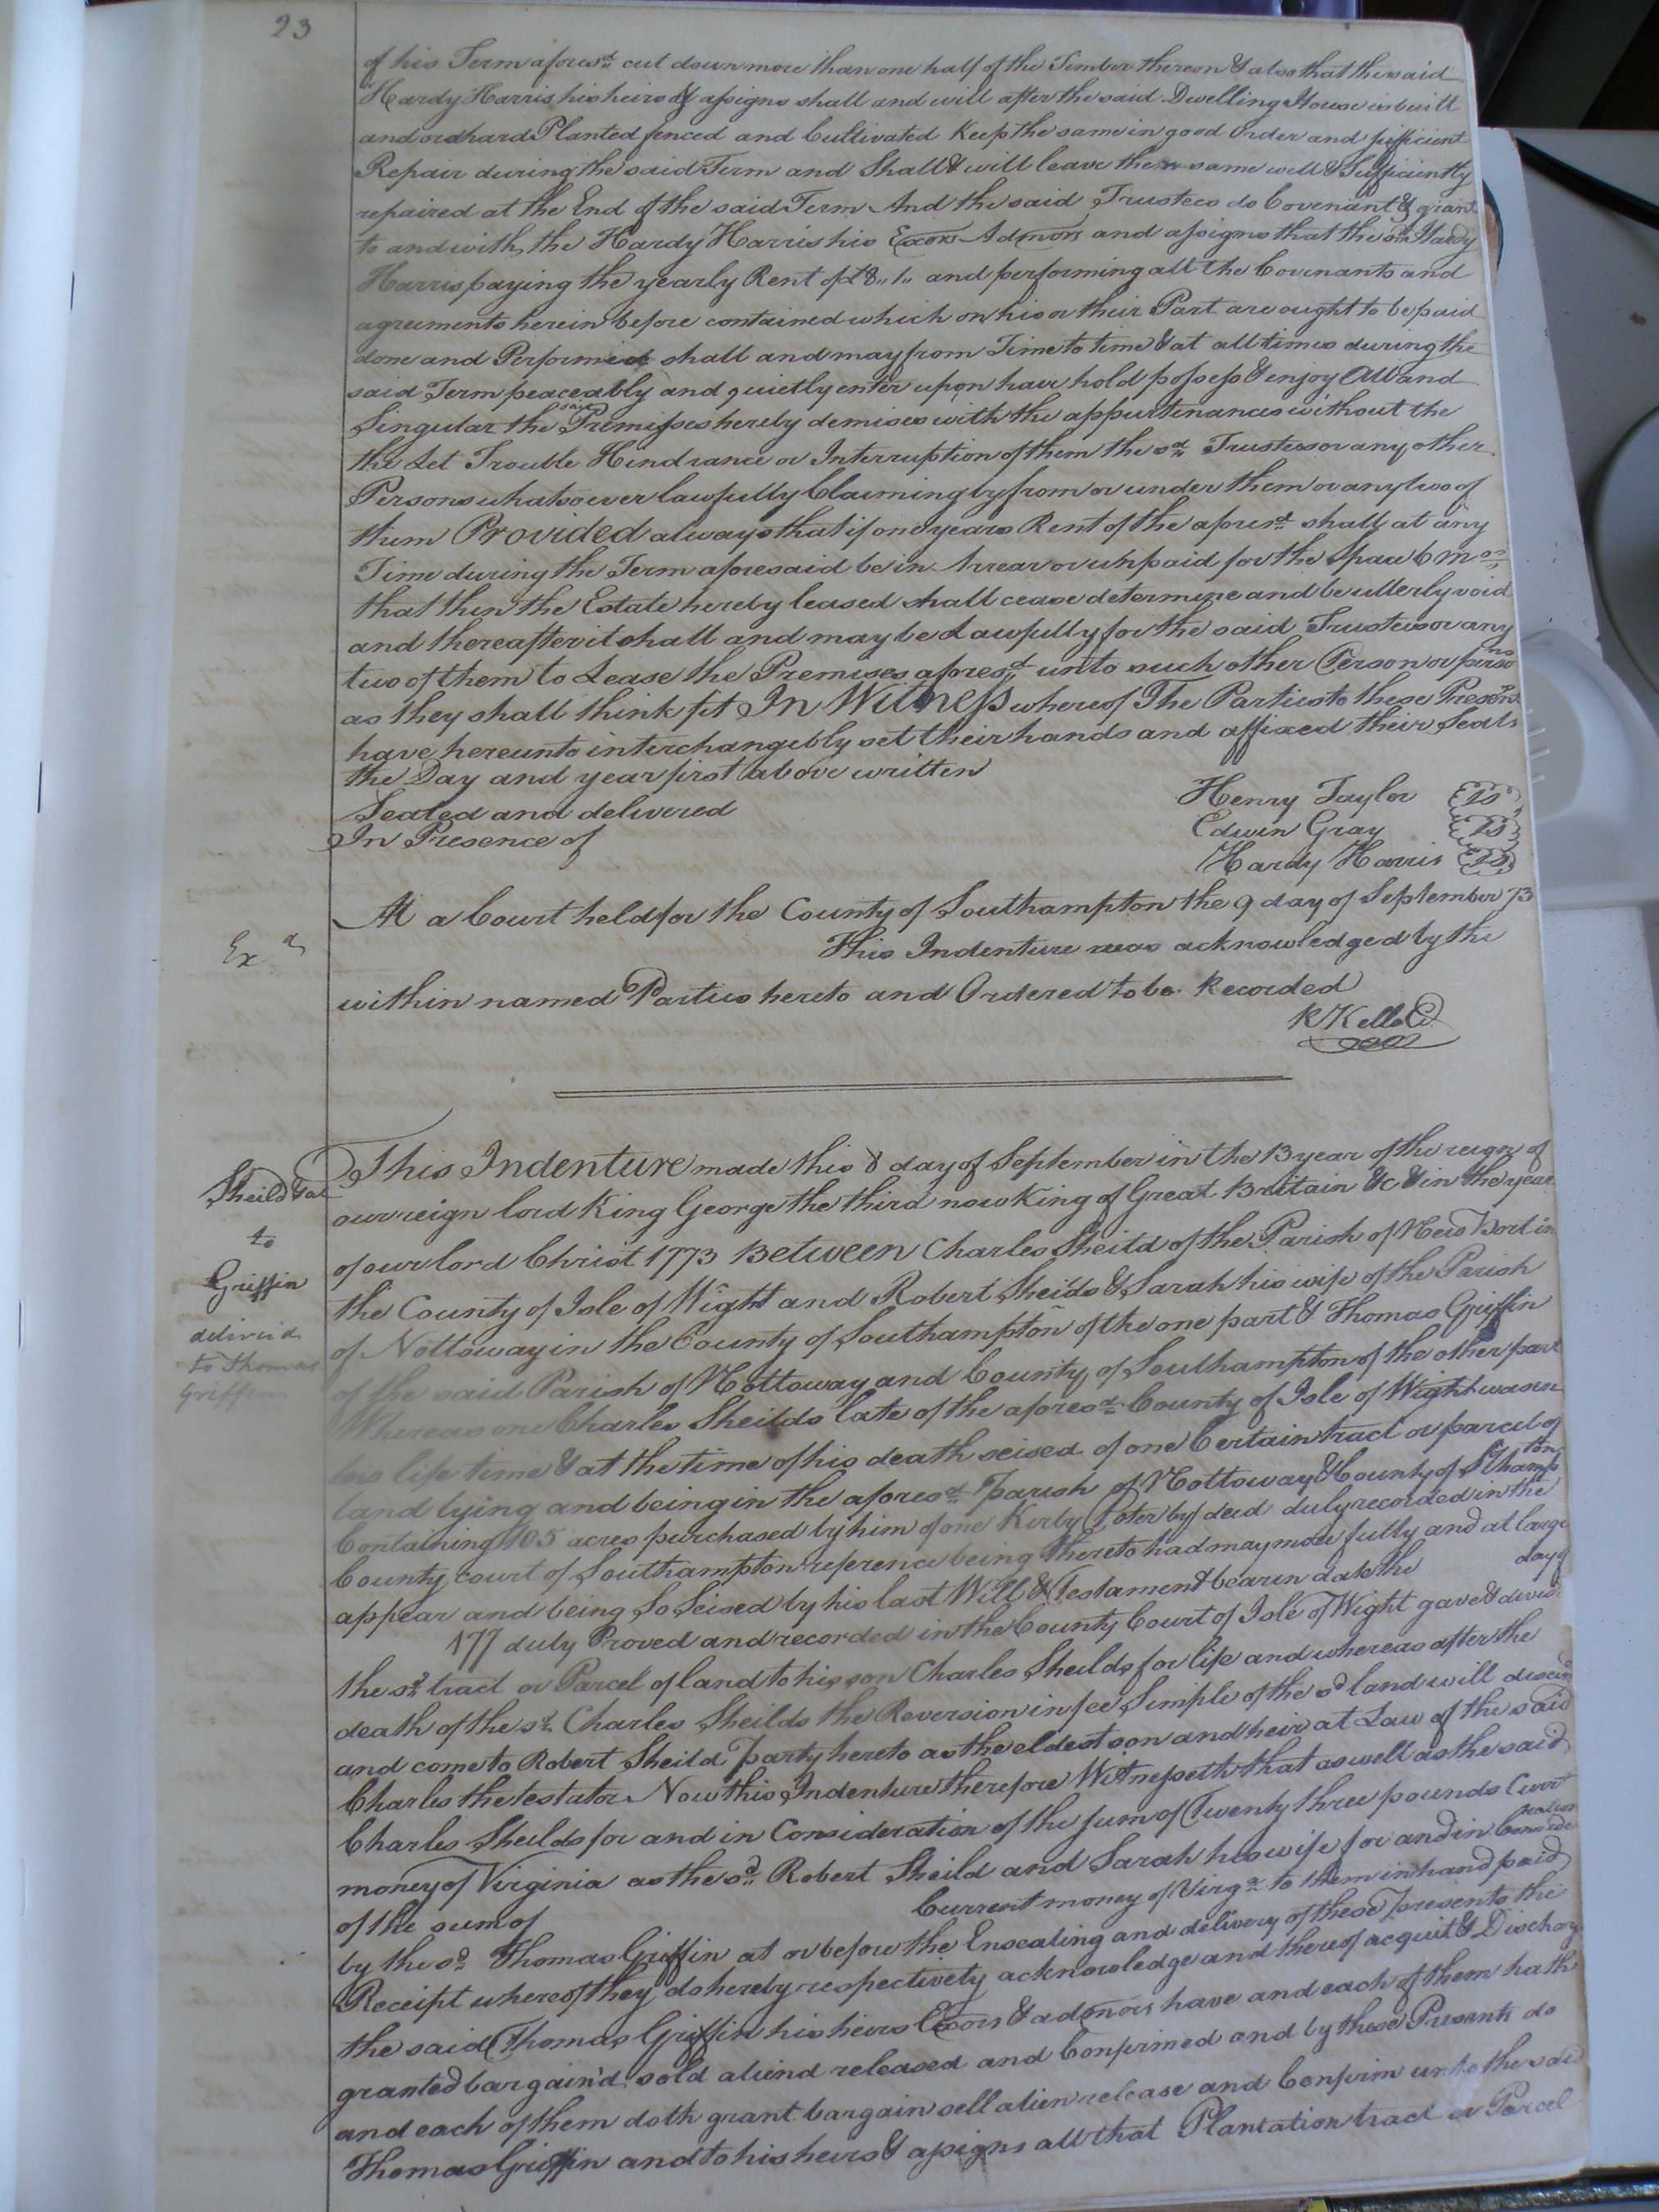 23
of his Term aforesd. cut down more than one half of the Timber thereon & also that the said
Hardy Harris his heirs & assigns shall and will after the said Dwelling House is built
and orchard Planted fenced and Cultivated Keep the same in good Order and sufficient
Repair during the said Term and Shall & will leave the same well & Sufficiently
repaired at the End of the said Term And the said Trustees do Covenant & grant
to and with the Hardy Harris his Exors Admors and assigns that the sd. Hardy
Harris paying the yearly Rent of £8,,1,, and performing all the Covenants and
agreements herein before contained which on his or their Part are ought to be paid
done and Performed shall and may from Time to time & at all times during the
said Term peaceably and quietly enter upon have hold possess & enjoy All and
Singular the said Premisses hereby demises with the appurtinances without the
the Let Trouble Hindrance or Interruption of them the sd. Trustees or any other
Persons whatsoever lawfully Claiming by from or under them or any two of
them Provided always that if one years Rent of the aforesd. shall at any
Time during the Term aforesaid be in Arrear or unpaid for the Space 6 mos.
that then the Estate hereby leased shall cease determine and be utterly void
and thereafter it shall and may be Lawfully for the said Trustees or any
two of them to Lease the Premises aforesd. unto such other Person or persons
as they shall think fit In Witness whereof The Parties to these Presents
have hereunto interchangibly set their hands and affixed their Seals
the Day and year first above written
Sealed and delivered
In Presence of
Henry Taylor Ls
Edwin Gray Ls
Hardy Harris Ls
At a Court held for the County of Southampton the 9 day of September 73
Exd.
This Indenture was acknowledged by the
within named Parties hereto and Ordered to be Recorded
R Kello C
Sheild & al
to
Griffin
deliverd
to Thomas
Griffin
This Indenture made this 8 day of September in the 13 year of the reign of
our reign lord King George the third now King of Great Britain &c & in the year
of our lord Christ 1773 Between Charles Sheild of the Parish of New Port in
the County of Isle of Wight and Robert Sheilds & Sarah his wife of the Parish
of Nottoway in the County of Southampton of the one part & Thomas Griffin
of the said Parish of Nottoway and County of Southampton of the other part
Whereas one Charles Sheilds late of the aforesd. County of Isle of Wight was in
his life time & at the time of his death seised of one Certain tract or parcel of
land lying and being in the aforesd. Parish of Nottoway & County of Sthampton
Containing 105 acres purchased by him of one Kirby Poter by deed duly recorded in the
County court of Southampton reference being thereto had may more fully and at large
appear and being So Seised by his last Will & Testament bearin date the day of
177 duly Proved and recorded in the County Court of Isle of Wight gave & devis
the sd. tract or Parcel of land to his son Charles Sheilds for life and whereas after the
death of the sd. Charles Sheilds the Reversion in fee Simple of the sd land will descend
and come to Robert Sheild Party hereto as the eldest son and heir at Law of the said
Charles the testator Now this Indenture therefore Witnesseth that as well as the said
Charles Sheilds for and in Consideration of the sum of Twenty three pounds Currt
money of Virginia as the sd. Robert Sheild and Sarah his wife for and in Consideration
of the sum of Current money of Virga. to them in hand paid
by the sd. Thomas Griffin at or before the Ensealing and delivery of these Presents the
Receipt whereof they do hereby respectively acknowledge and thereof acquit & Discharg
the said Thomas Griffin his heirs Exors & admors have and each of them hath
granted bargain'd sold aliend released and Confirmed and by these Presents do
and each of them doth grant bargain sell alien release and Confirm unto the said
Thomas Griffin and to his heirs & assigns all that Plantation tract or Parcel